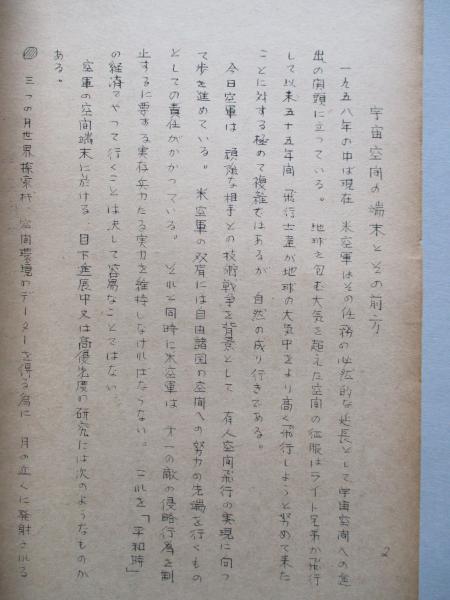 宇宙空間の端末とその前方
一九五八年の中は現在 米空軍はその任務の必然的な延長として宇宙空間への進
出の関頭に立っている。 地球を包む大気を超えた空間の征服はライト兄弟が飛行
して以来五十五年間 飛行士達が地球の大気中をより高く飛行しようと努めて来た
ことに対する極めて複雑ではあるが 自然の成り行きである。
今日空軍は 頑強な相手との技術戦争を背景として 有人空間飛行の実現に向つ
て歩を進めている。 米空軍の双肩には自由諸国の空間への努力の先端を行くもの
としての責任がかかつている。 それと同時に米空軍は 万一の敵の侵略行為を制
止するに要する実存兵力たる実力を維持しなければならない。 これを「平和時」
の経済でやつて行くことは決して容易なことではない
空軍の空間端末に於ける 目下進展中又は高優先度の研究には次のようなものが
ある。
三つの月世界探索機 空間環境のデーターを得る為に 月の近くに発射される
2